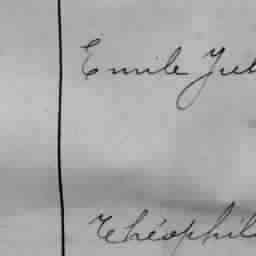 Emile Jul
Théophil